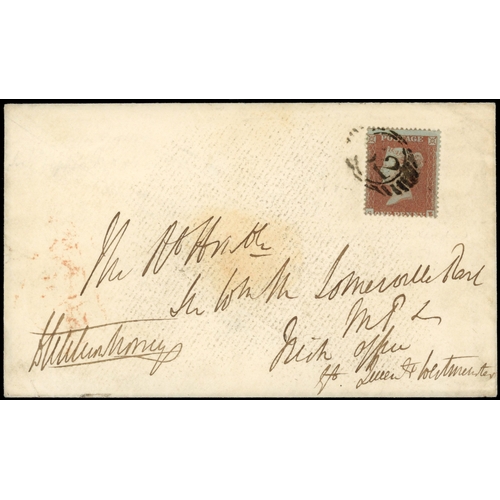 POSTAGE
12
The Rt Honble
Sir Wm M Somerville Bart
M P &
Irish Office
Gt. Queen St Westminster